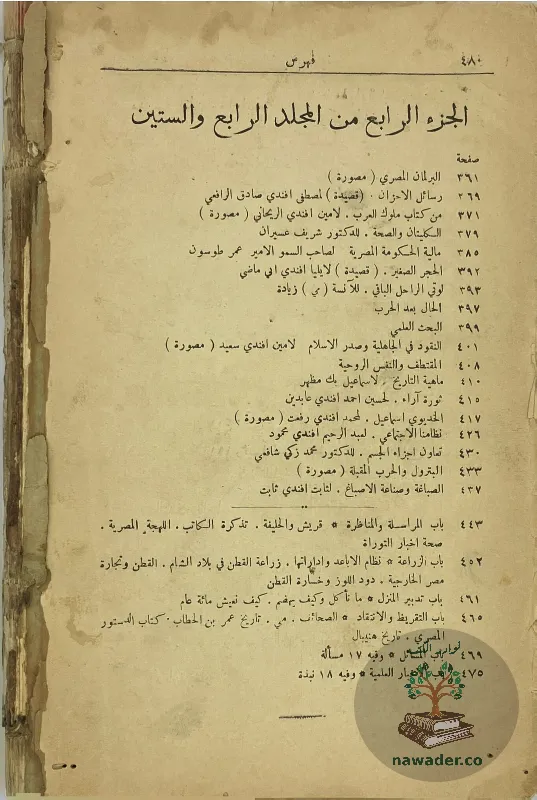 ٤٨٠ فهرس
الجزء الرابع من المجلد الرابع والستين
صفحة
٣٦١ البرلمان المصري ( مصورة )
٣٦٩ رسائل الاحزان . (قصيدة) لمصطفى افندي صادق الرافعي
٣٧١ من كتاب ملوك العرب . لامين افندي الريحاني ( مصورة )
٣٧٩ السكليتان والصحة . للدكتور شريف عسيران
٣٨٥ مالية الحكومة المصرية لصاحب السمو الامير عمر طوسون
٣٩٢ الحجر الصغير . ( قصيدة ) لايليا افندي ابي ماضي
٣٩٣ لوتي الراحل الباقي . للآنسة ( مي ) زيادة
٣٩٧ الحال بعد الحرب
٣٩٩ البحث العلمي
٤٠١ النقود في الجاهلية وصدر الاسلام لامين افندي سعيد ( مصورة )
٤٠٨ المقتطف والنفس الروحية
٤١٠ ماهية التاريخ . لاسماعيل بك مظهر
٤١٥ ثورة آراء . لحسين احمد افندي عابدين
٤١٧ الخديوي اسماعيل . لمحمد افندي رفعت ( مصورة )
٤٢٦ نظامنا الاجتماعي . لعبد الرحيم افندي محمود
٤٣٠ تعاون اجزاء الجسم . للدكتور محمد زكي شافعي
٤٣٣ البترول والحرب المقبلة ( مصورة )
٤٣٧ الصباغة وصناعة الاصباغ . لثابت افندي ثابت
٤٤٣ باب المراسلة والمناظرة * قريش والخليفة . تذكرة الكاتب . اللهجة المصرية .
صحة اخبار التوراة
٤٥٢ باب الزراعة * نظام الاباعد واداراتها . زراعة القطن في بلاد الشام . القطن وتجارة
مصر الخارجية . دود اللوز وخسارة القطن
٤٦١ باب تدبير المنزل * ما نأكل وكيف يهضم . كيف نعيش مائة عام
٤٦٥ باب التقريظ والانتقاد * الصحائف . مي . تاريخ عمر بن الخطاب . كتاب الدستور
المصري . تاريخ هنيبال
٤٦٩ باب المسائل * وفيه ١٧ مسألة
٤٧٥ باب الاخبار العلمية * وفيه ١٨ نبذة
نوادر الكتب
nawader.co